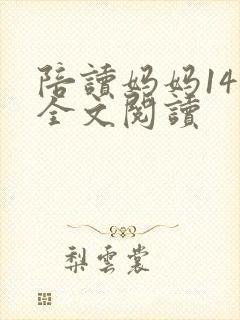 陪讀妈妈14
全文閱讀
梨雲裳